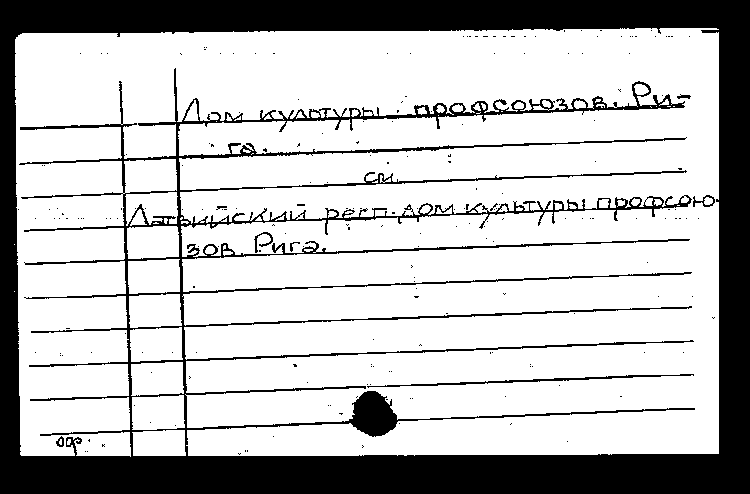 Дом культуры профсоюзов. Ри-
га.
см.
Латвийский респ. дом культуры профсою-
зов. Рига.